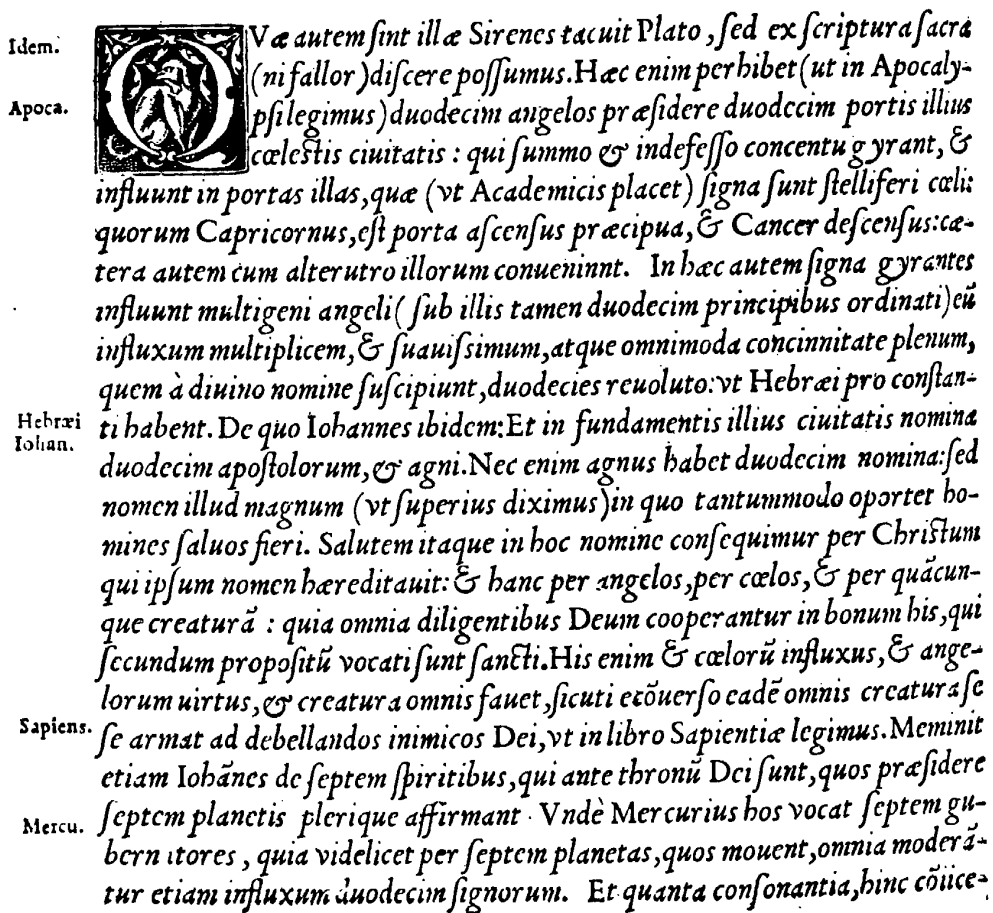 Idem.
QVæ autem ſint illæ Sirenes tacuit Plato, ſed ex ſcriptura ſacra
(ni fallor) diſcere poſſumus. Hæc enim perhibet (ut in Apocaly-
Apoca.
pſi legimus) duodecim angelos præſidere duodecim portis illius
cœleſtis ciuitatis : qui ſummo & indefeſſo concentu gyrant, &
influunt in portas illas, quæ (vt Academicis placet) ſigna ſunt ſtelliferi cœli:
quorum Capricornus, eſt porta aſcenſus præcipua, & Cancer deſcenſus: cæ-
tera autem cum alterutro illorum conueninnt. In hæc autem ſigna gyrantes
influunt multigeni angeli (ſub illis tamen duodecim principibus ordinati) eũ
influxum multiplicem, & ſuauiſsimum, atque omnimoda concinnitate plenum,
quem à diuino nomine ſuſcipiunt, duodecies reuoluto: vt Hebræi pro conſtan-
Hebræi
Iohan.
ti habent. De quo Iohannes ibidem: Et in fundamentis illius ciuitatis nomina
duodecim apoſtolorum, & agni. Nec enim agnus habet duodecim nomina: ſed
nomen illud magnum (vt ſuperius diximus) in quo tantummodo oportet ho-
mines ſaluos fieri. Salutem itaque in hoc nomine conſequimur per Chriſtum
qui ipſum nomen hæreditauit: & hanc per angelos, per cœlos, & per quãcun-
que creaturã : quia omnia diligentibus Deum cooperantur in bonum his, qui
ſecundum propoſitũ vocati ſunt ſancti. His enim & cœlorũ influxus, & ange-
lorum uirtus, & creatura omnis fauet, ſicuti ecõuerſo eadẽ omnis creatura ſe
Sapiens.
ſe armat ad debellandos inimicos Dei, vt in libro Sapientiæ legimus. Meminit
etiam Iohãnes de ſeptem ſpiritibus, qui ante thronũ Dei ſunt, quos præſidere
ſeptem planetis plerique affirmant. Vndè Mercurius hos vocat ſeptem gu-
Mercu.
bernatores, quia videlicet per ſeptem planetas, quos mouent, omnia moderã-
tur etiam influxum duodecim ſignorum. Et quanta conſonantia, hinc cõiice-